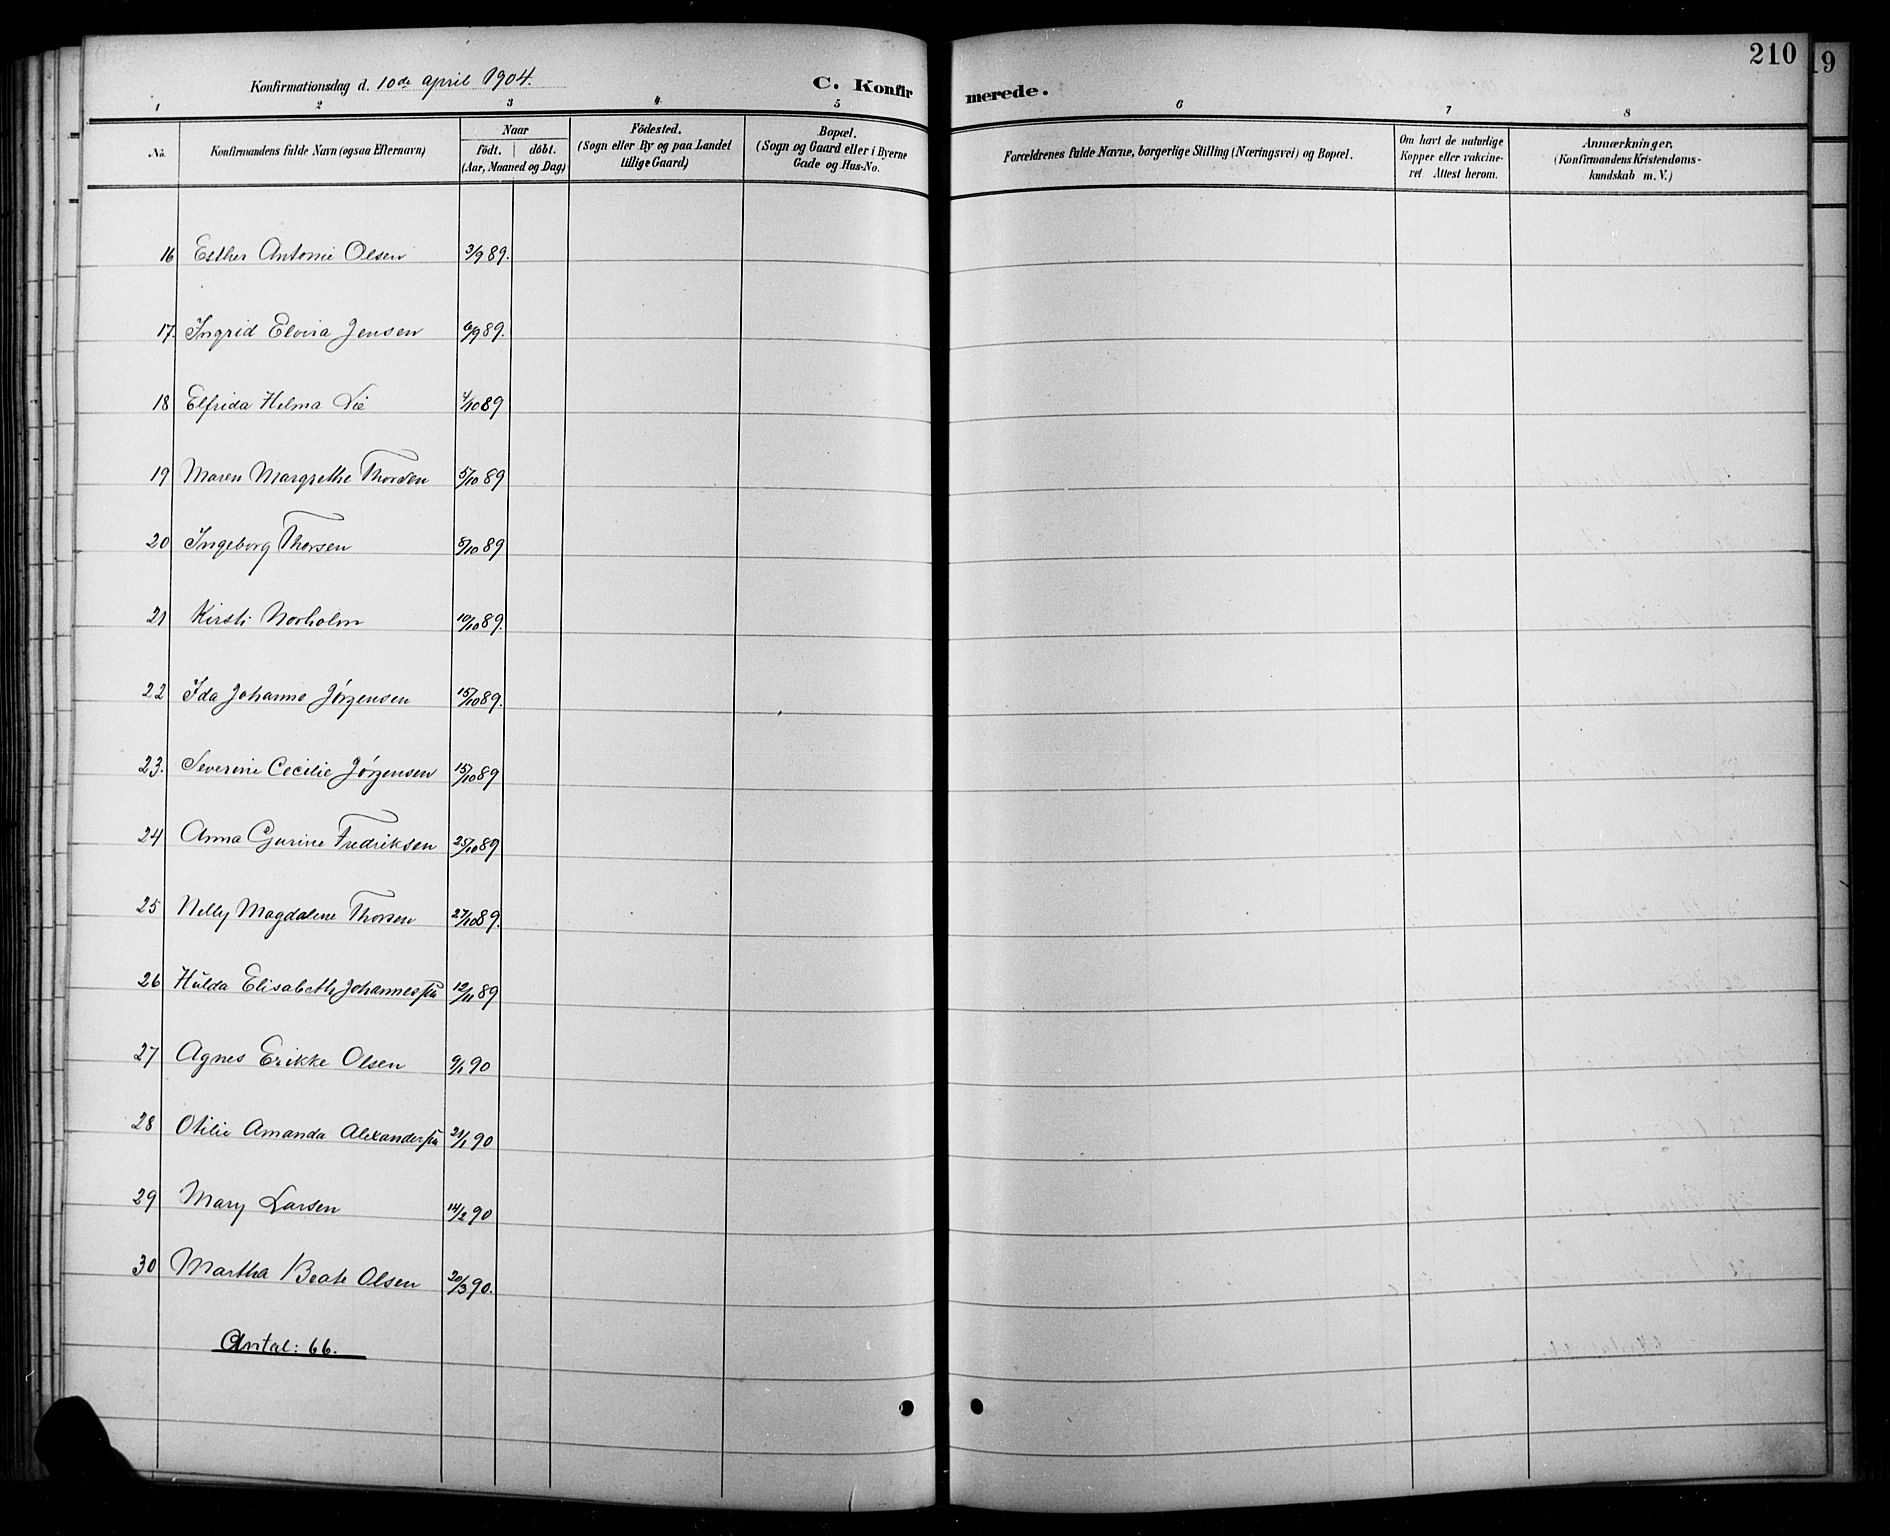 210
19
Konfirmationsdag d. 10de april 1904.
C. Konfirmerede.
1 2 3 4 5 6 7 8
No.
Konfirmandens fulde Navn (ogsaa Efternavn)
Naar
födt. | döbt.
(Aar, Maaned og Dag)
Födested.
(Sogn eller By og paa Landet
tillige Gaard)
Bopæl.
(Sogn og Gaard eller i Byerne
Gade og Hus-No.
Forældrenes fulde Navne, borgerlige Stilling (Næringsvei) og Bopæl.
Om havt de naturlige
Kopper eller vakcine-
ret Attest herom.
Anmærkninger,
(Konfirmandens Kristendoms-
kundskab m. V.)
16 Esther Antonie Olsen 3/9 89.
17. Ingrid Elvira Jensen 6/9 89.
18 Elfrida Helma Lie /10 89
19 Maren Margrethe Thorsen 5/10 89
20 Ingeborg Thorsen 5/10 89
21 Kirsti Norholm 10/10 89.
22 Ida Johanne Jørgensen 15/10 89.
23. Severine Cecilie Jørgensen 15/10 89
24 Anna Gurine Fredriksen 25/10 89
25 Nelly Magdalene Thorsen 27/10 89.
26 Hulda Elisabeth Johannessen 12/11 89
27 Agnes Erikke Olsen 9/1 90
28 Otilie Amanda Alexandersen 21/1 90
29 Mary Larsen 14/2 90
30 Martha Beate Olsen 20/3 90.
Antal: 66.